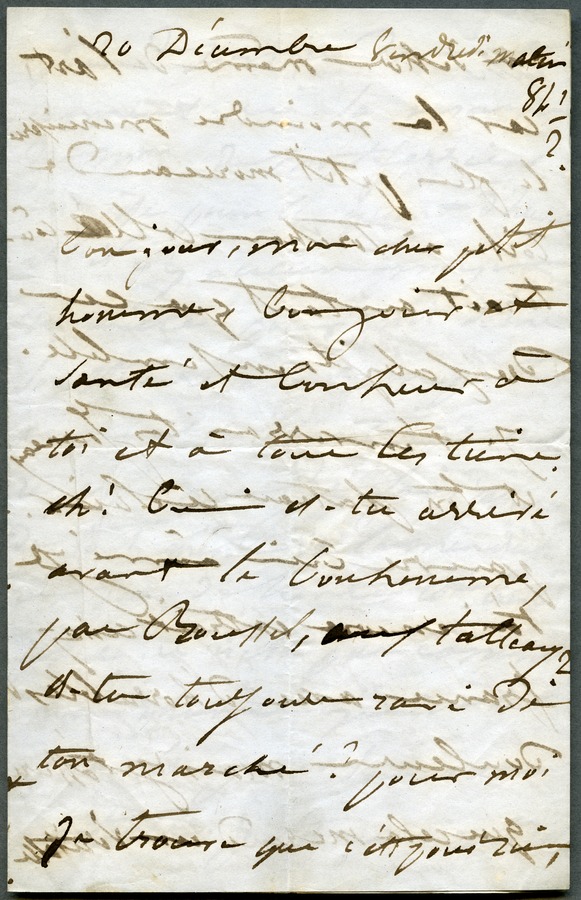 20 Décembre Vendredi matin
8h ½
bonjour, mon cher petit
homme, bonjour et
santé et bonheur à
toi et à tous les tiens.
eh! bien es-tu arrivé
avant le bonhomme,
par
es-tu toujours ravi de
ton marché? pour moi
je trouve que c'est pour rien,